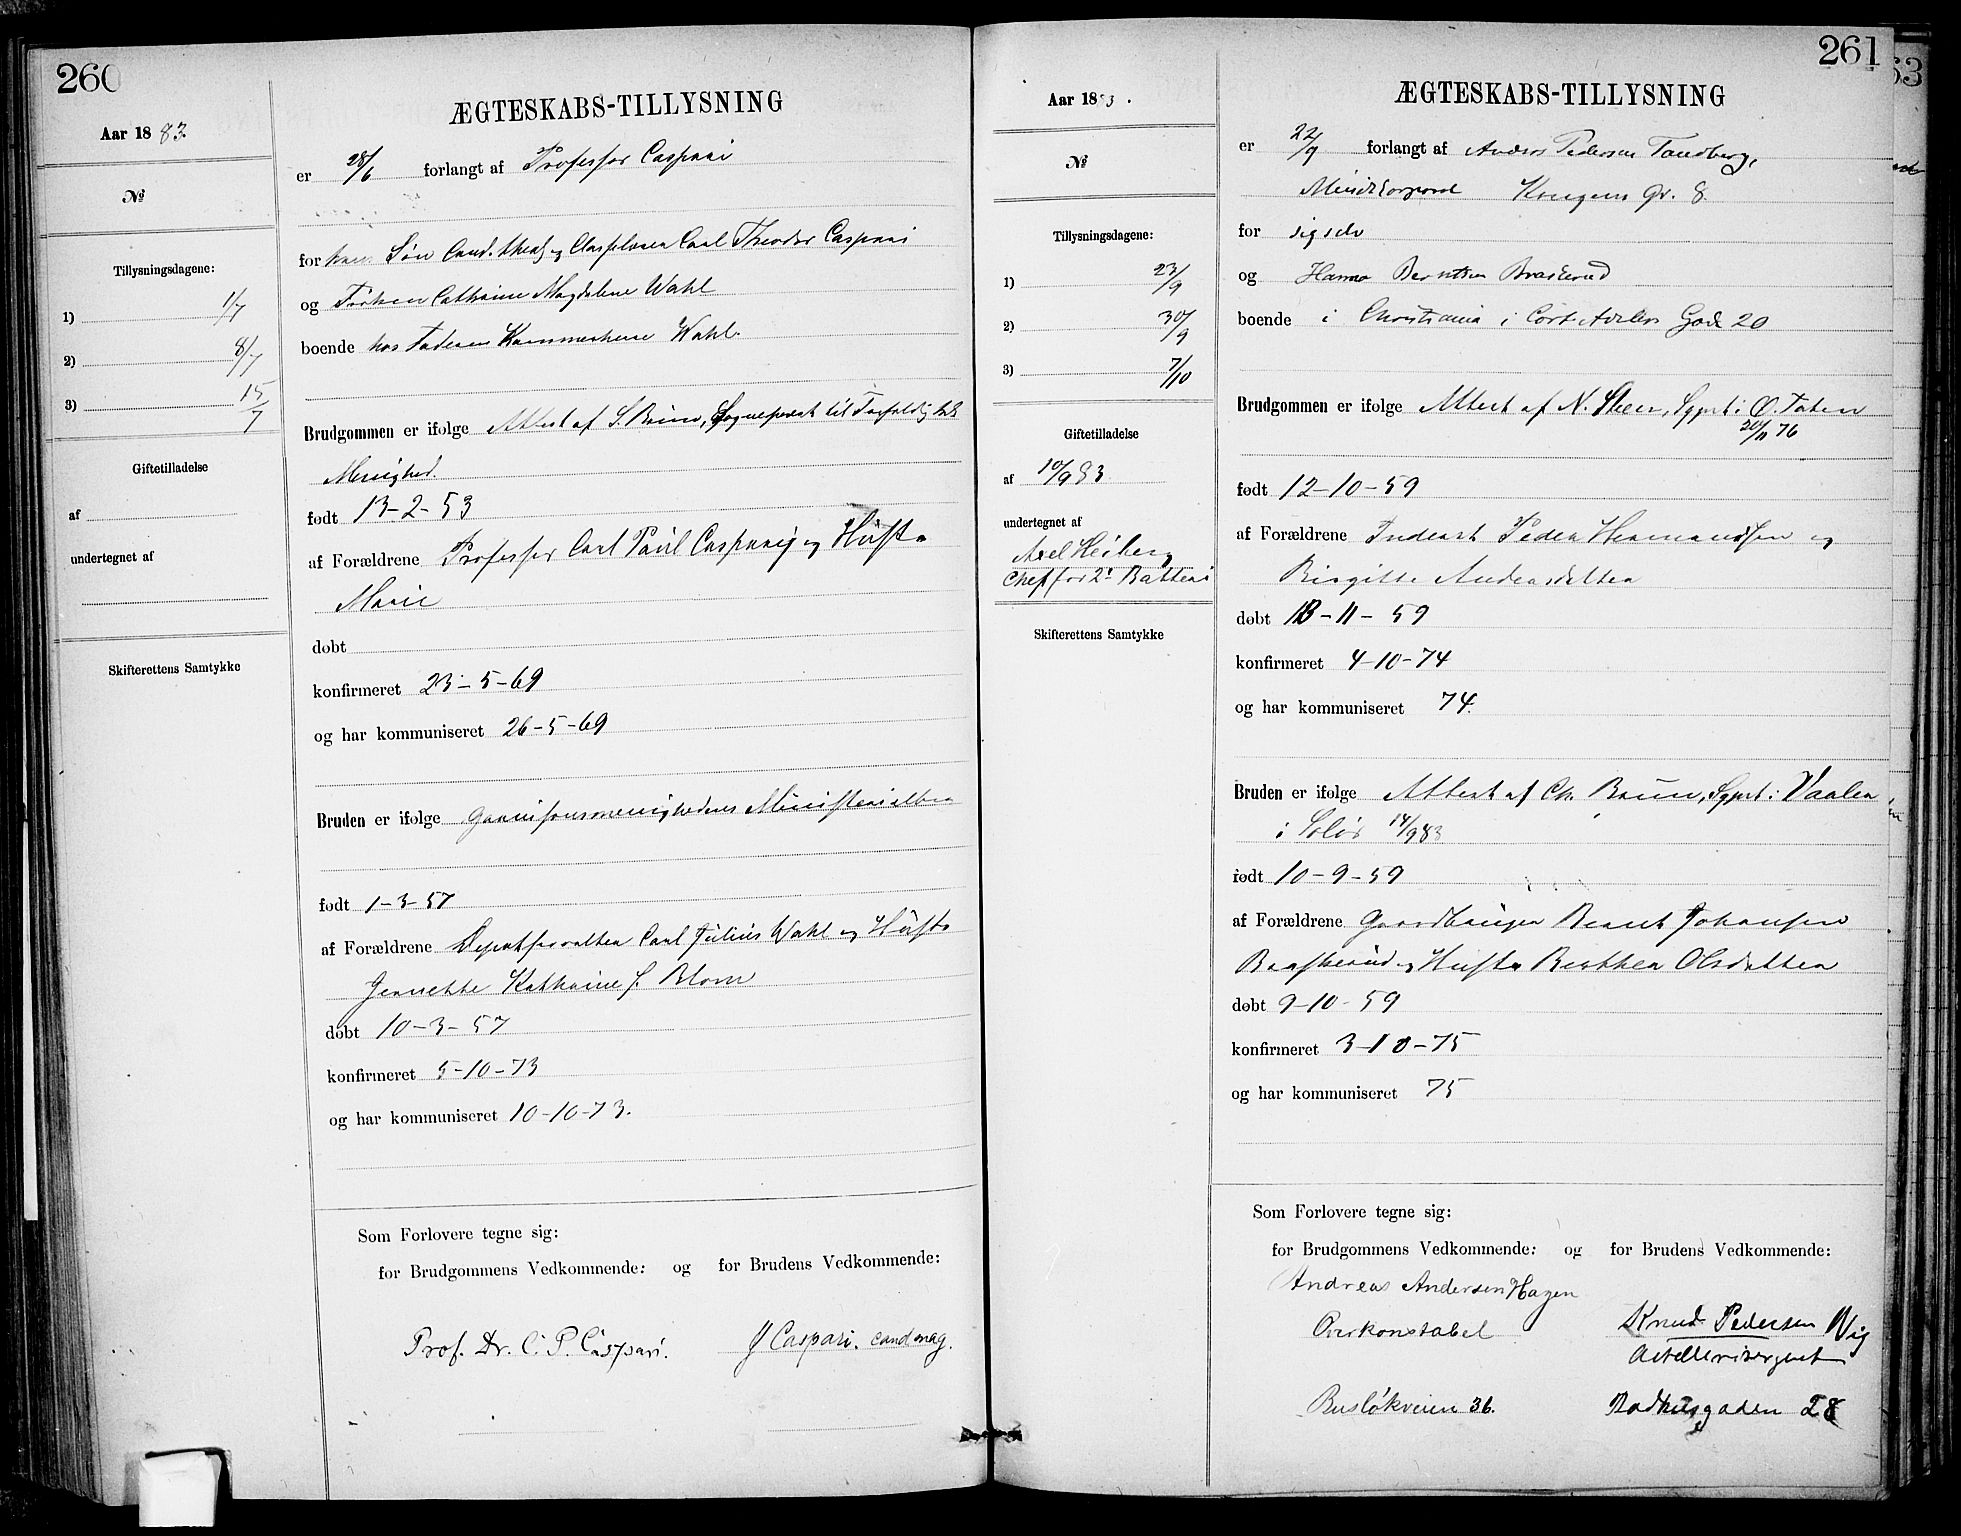 260
Aar 1883.
№
Tillysningsdagene:
1) 1/7
2) 8/7
3) 15/7
Giftetilladelse
af
undertegnet af
Skifterettens Samtykke
ÆGTESKABS-TILLYSNING
er 28/6 forlangt af Professor Caspari
for hans Søn Cand. theol. og Carl Theodor Caspari
og Frøken Cathrine Magdalene Wahl
boende hos Faderen Wahl
Brudgommen er ifølge Attest af S. Bruun, Sogneprest til Trefoldigheds
Menighed
født 13-2-53
af Forældrene Professor Carl Paul Caspari og Hustr
Marie
døbt
konfirmeret 23-5-69
og har kommuniseret 26-5-69
Bruden er ifølge Garnisonsmenighedens Ministerialbog
født 1-3-57
af Forældrene Depotforvalter Carl Julius Wahl og Hustr
Jennette Kathrine f. Blom
døbt 10-3-57
konfirmeret 5-10-73
og har kommuniseret 10-10-73.
Som Forlovere tegne sig:
for Brudgommens Vedkommende: og for Brudens Vedkommende:
Prof. Dr. C. P. Caspari. J Caspari. cand mag.
261
Aar 1883.
№
Tillysningsdagene:
1) 23/9
2) 30/9
3) 7/10
Giftetilladelse
af 10/9 83
undertegnet af
Axel Heiberg
Chef for 2t Batteri
Skifterettens Samtykke
ÆGTESKABS-TILLYSNING
er 22/9 forlangt af Anders Pedersen Tandberg,
Kongens Gr. 8
for sig selv
og Hanna Berntsen Braskerud
boende i Christiania i Cort Adelers Gade 20
Brudgommen er ifølge Attest af N. Steen, Sgprst i Ø. Toten
20/11 76
født 12-10-59
af Forældrene Inderst Peder Hermandsen og
Birgitte Andersdatter
døbt 13-11-59
konfirmeret 4-10-74
og har kommuniseret 74.
Bruden er ifølge Attest af Ch. Bruun, Sgprst i Vaaler
i Solør 14/9 83
født 10-9-59
af Forældrene Gaardbruger Bernt Johansen
Braskerud og Hustr Berthea Olsdatter
døbt 9-10-59
konfirmeret 3-10-75
og har kommuniseret 75
Som Forlovere tegne sig:
for Brudgommens Vedkommende: og for Brudens Vedkommende:
Andreas Andersen Hagen
Knud Pedersen Wig
Overkonstabel
Artellerisergent
Rusløkveien 36.
Radhusgaden 28